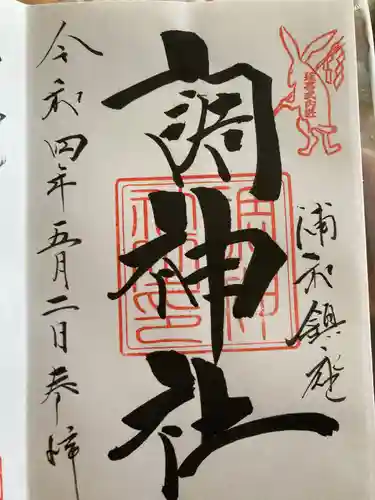 浦和鎮座
調神社
令和四年五月二日奉拝